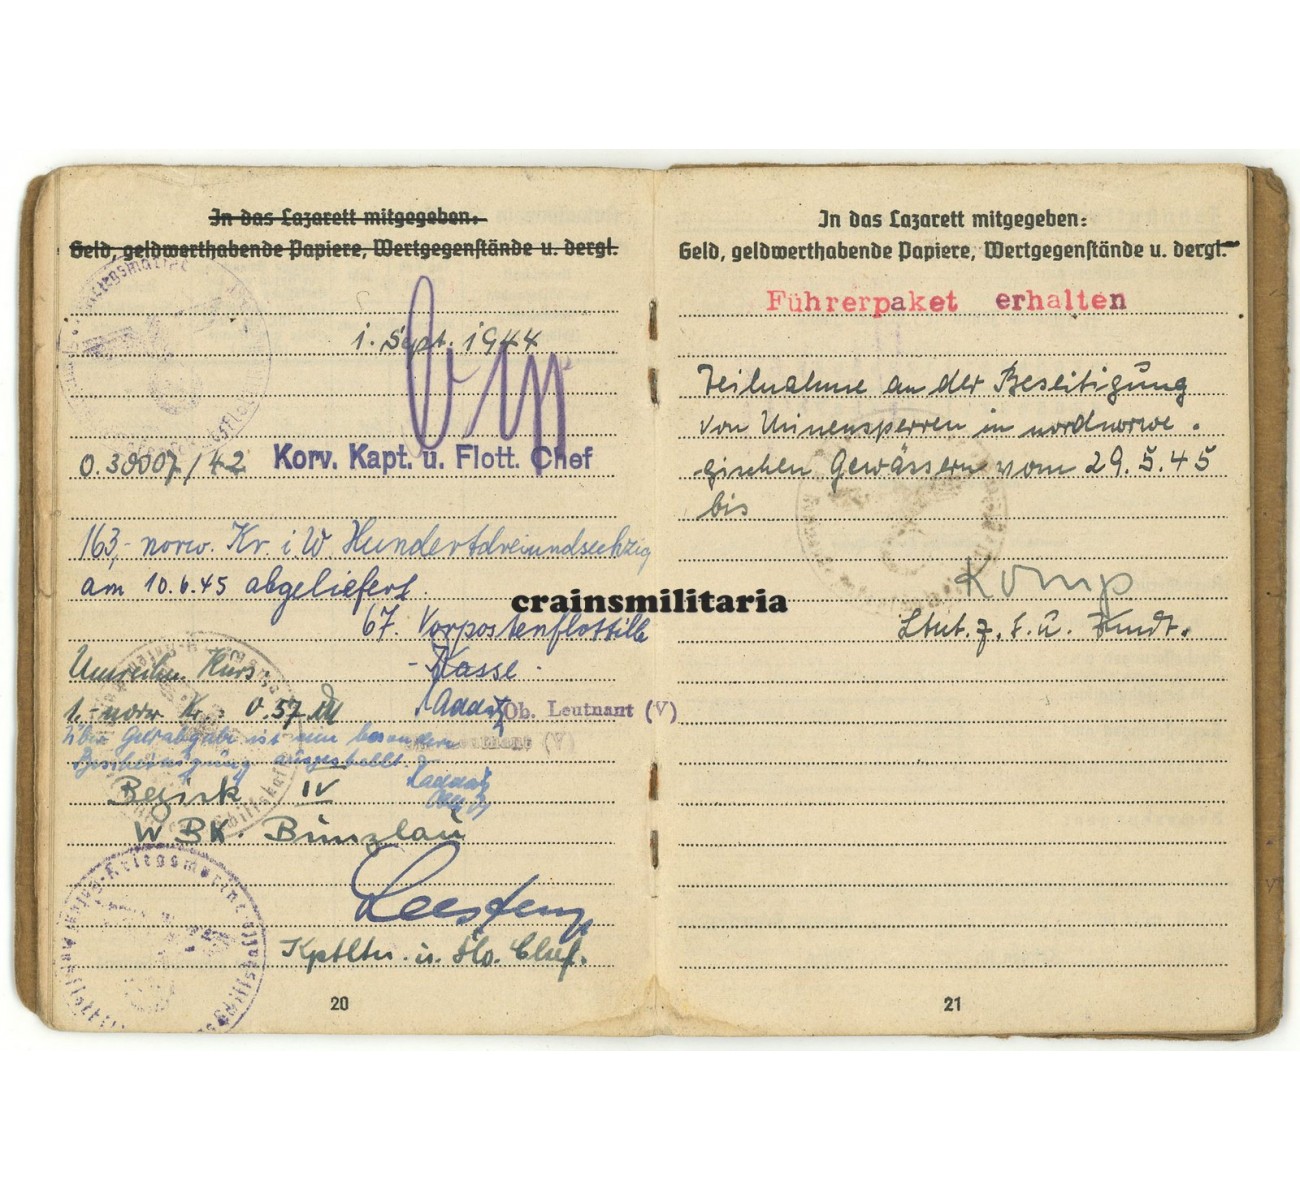 In das Lazarett mitgegeben:
Geld, geldwerthabende Papiere, Wertgegenstände u. dergl.
1. Sept. 1944
O.30007/42
Korv. Kapt. u. Flott. Chef
163,- norw. Kr. i. W. Hundertdreiundsechzig
am 10.6.45 abgeliefert.
67. Vorpostenflottille
- Kasse -
Umrechn. Kurs
Ob. Leutnant (V)
1.- norw Kr. = 0.57 RM
über Geldabgabe ist eine besondere
Bescheinigung ausgestellt.
Bezirk IV
WBK. Bunzlau
Kptltn. u. Flo. Chef.
20
In das Lazarett mitgegeben:
Geld, geldwerthabende Papiere, Wertgegenstände u. dergl.
Führerpaket erhalten
Teilnahme an der Beseitigung
von Minensperren in nordnorwe-
gischen Gewässern vom 29.5.45
bis
Komp
Ltnt. z. S. u. Kmdt.
21
crainsmilitaria